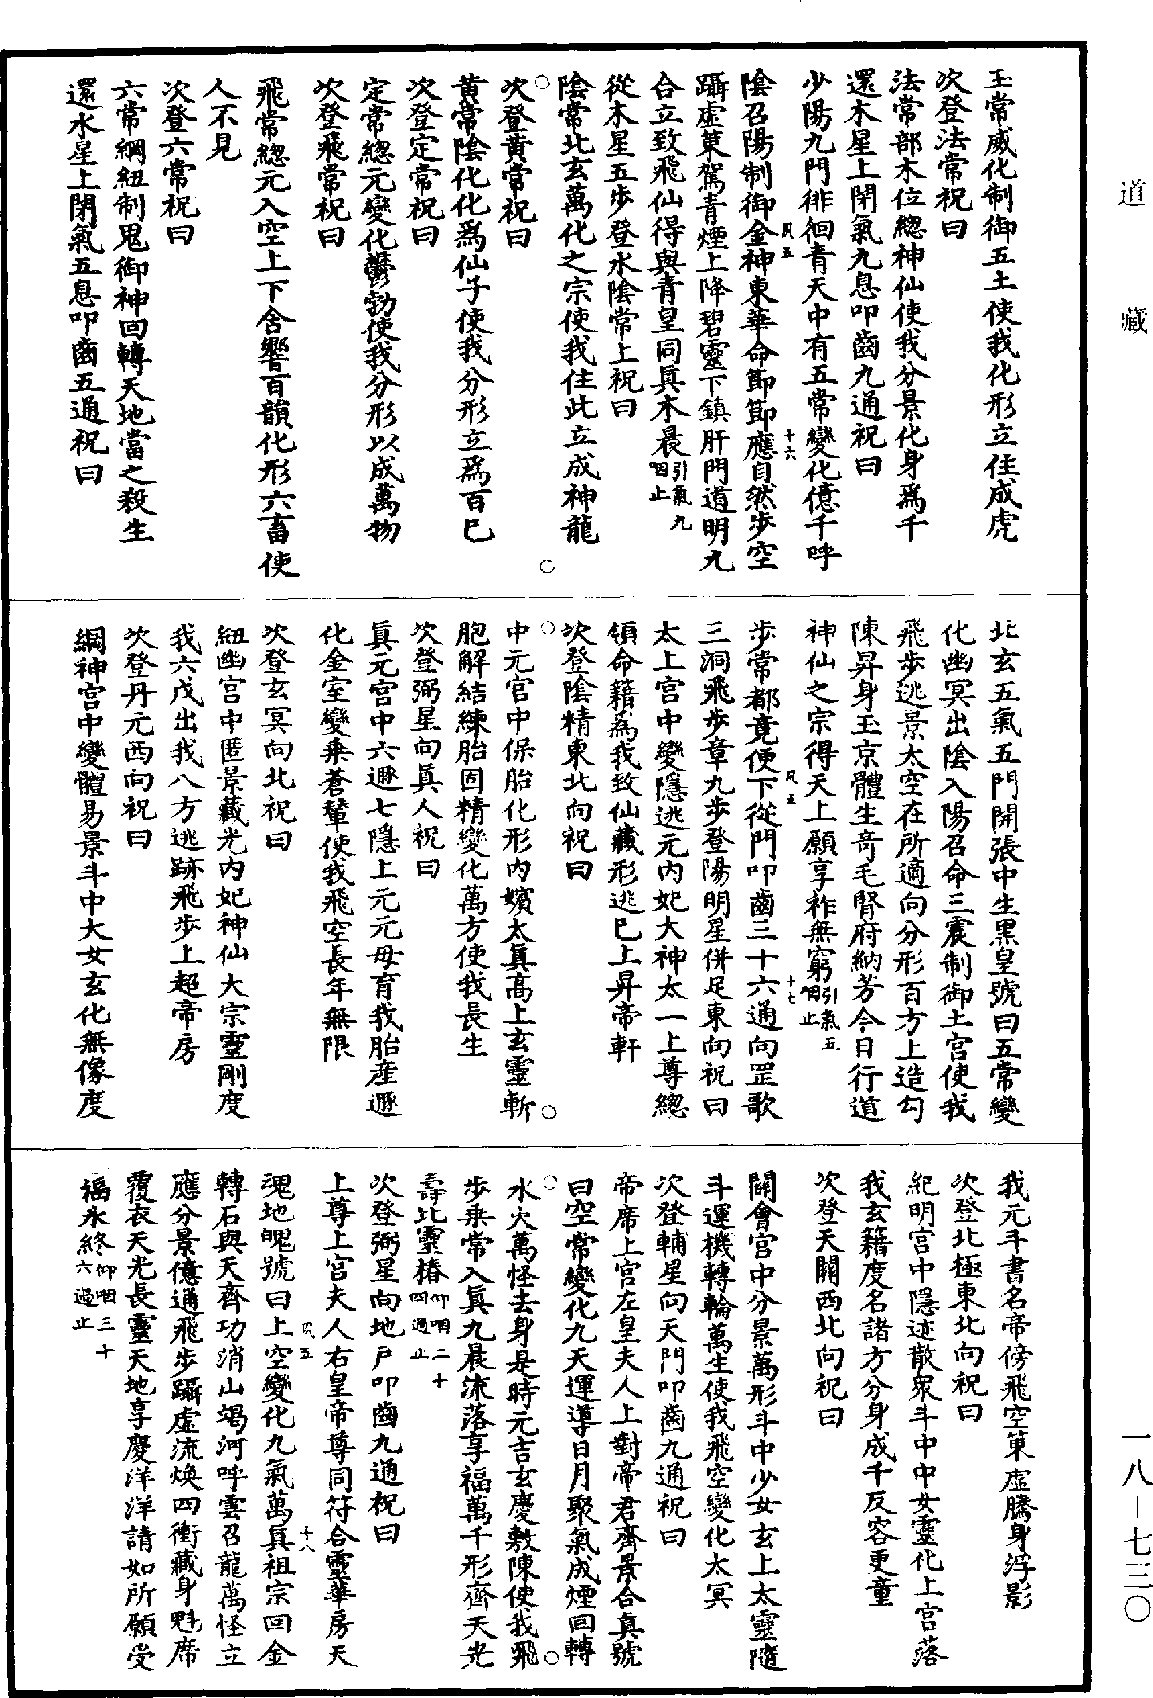 道藏
玉常威化制御五土使我化形立住成虎
次登法常祝曰
法常部木位總神仙使我分景化身爲千
還木星上閉氣九息叩齒九通祝曰
少陽九門徘徊青天中有五常變化億千呼
陰召陽制御金神東華命節節應自然步空
躡虛策駕青煙上降碧靈下鎮肝門道明九
合立致飛仙得與青皇同真木晨引氣九咽止
從木星五步登水陰常上祝曰
陰常北玄萬化之宗使我住此立成神龍
次登黃常祝曰
黃常陰化化爲仙子使我分形立爲百巳
次登定常祝曰
定常總元變化鬱勃使我分形以成萬物
次登飛常祝曰
飛常總元入空上下含響百韻化形六畜使
人不見
次登六常祝曰
六常綱紐制鬼御神回轉天地當之殺生
還水星上閉氣五息叩齒五通祝曰
北玄五氣五門開張中生黑皇號曰五常變
化幽冥出陰入陽召命三震制御土宫使我
飛步逃景太空在所適向分形百方上造勾
陳昇身玉京體生奇毛腎府納芳今日行道
神仙之宗得天上願享祚無窮引氣五咽止
步常都竟便下從門叩齒三十六通向罡歌
三洞飛步章九步登陽明星併足東向祝曰
太上宫中變隱逃元内妃大神太一上尊總
領命籍爲我致仙藏形逃巳上昇帝軒
次登陰精東北向祝曰
中元官中保胎化形内嬪太真高上玄靈斬
胞解結練胎固精變化萬方使我長生
次登弼星向真人祝曰
真元宫中六遯七隱上元元母育我胎産遯
化金室變乘蒼輦使我飛空長年無限
次登玄冥向北祝曰
紐幽宫中匿景藏光内妃神仙大宗靈剛度
我六戊出我八方逃跡飛步上超帝房
次登丹元西向祝曰
綱神宫中變體易景斗中大女玄化無像度
我元斗書名帝傍飛空策虛騰身浮影
次登北極東北向祝曰
紀明宫中隱迹散衆斗中中女靈化上宫落
我玄籍度名諸方分身成千反容更童
次登天關西北向祝曰
關會宫中分景萬形斗中少女玄上太靈隨
斗運機轉輪萬生使我飛空變化太冥
次登輔星向天門叩齒九通祝曰
帝席上宫左皇夫人上對帝君齊景合真號
曰空常變化九天運導日月聚氣成煙回轉
水火萬怪去身是時元吉玄慶敷陳使我飛
步乘常入真九晨流落享福萬千形齊天光
壽比靈椿仰咽二十四過止
次登弼星向地戶叩齒九通祝曰
上尊上宫夫人右皇帝尊同符合靈華房天
魂地魄號曰上空變化九氣萬真祖宗回金
轉石與天齊功消山竭河呼雲召龍萬怪立
應分景億通飛步躡虛流煥四衝藏身魁席
覆衣天光長靈天地享慶洋洋請如所願受
福永終仰咽三十六過止
一八-七三〇